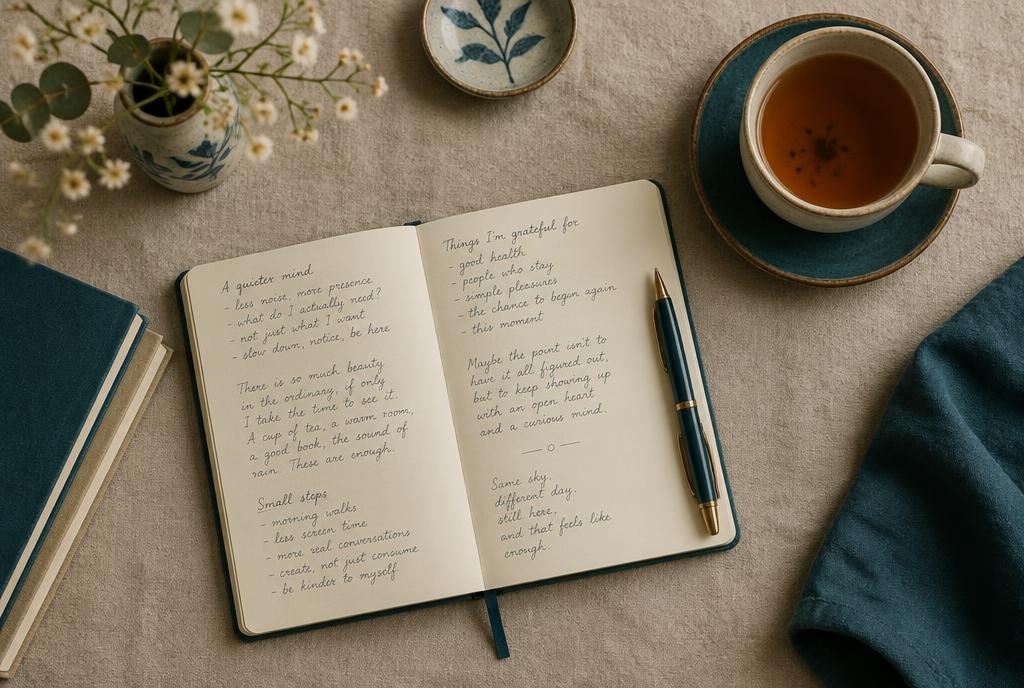 A quieter mind
- less noise, more presence
- what do I actually need?
- not just what I want
- slow down, notice, be here
There is so much beauty
in the ordinary, if only
I take the time to see it.
A cup of tea, a warm room,
a good book, the sound of
rain. These are enough.
Small steps
- morning walks
- less screen time
- more real conversations
- create, not just consume
- be kinder to myself
Things I'm grateful for
- good health
- people who stay
- simple pleasures
- the chance to begin again
- this moment
Maybe the point isn't to
have it all figured out,
but to keep showing up
with an open heart
and a curious mind.
Same sky,
different day.
still here,
and that feels like
enough.